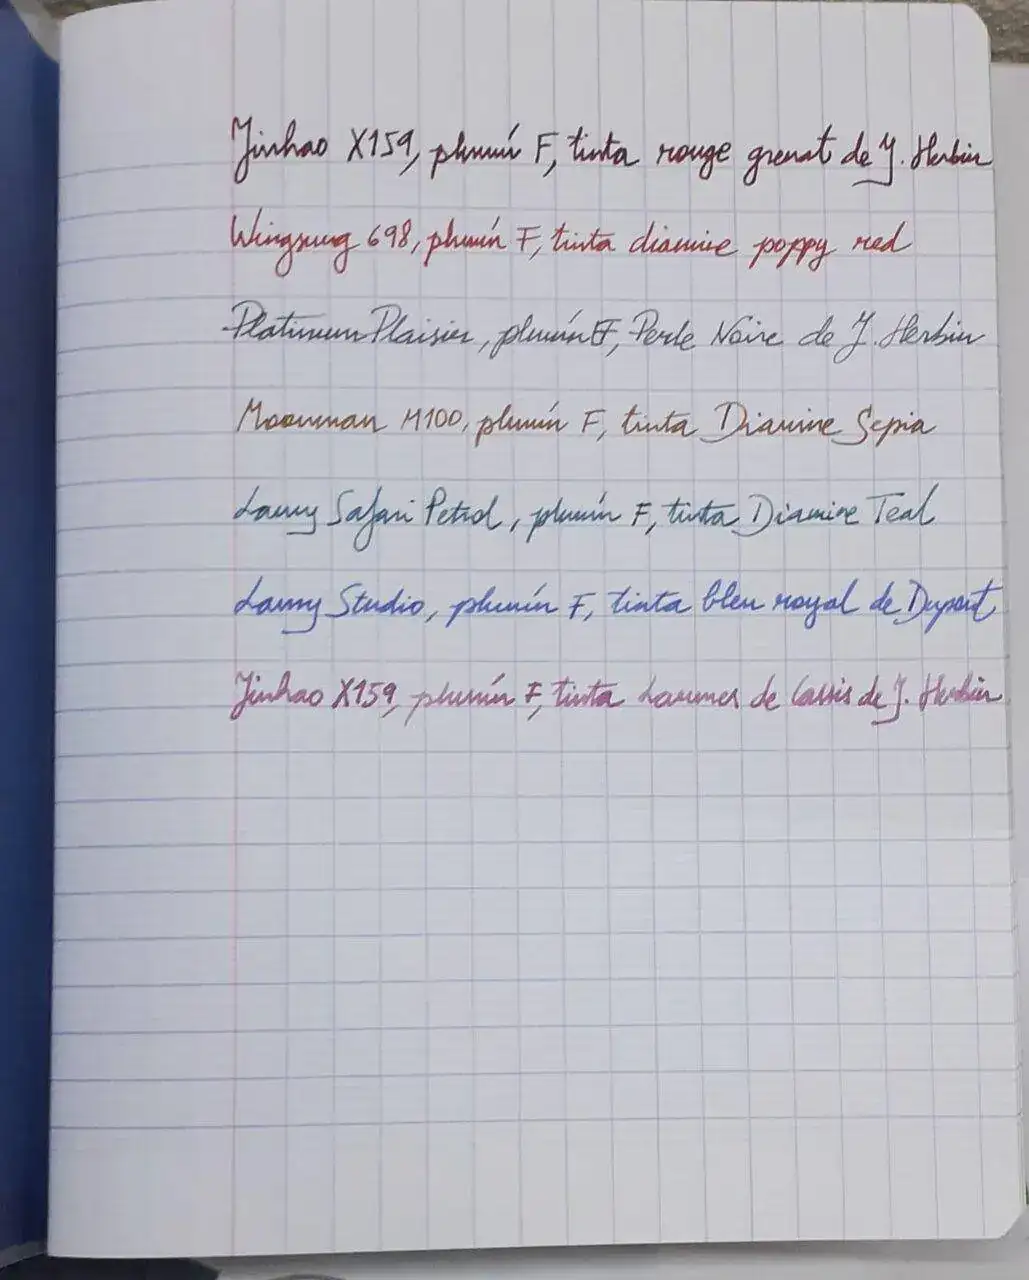 Jinhao X159, plumín F, tinta rouge grenat de J. Herbin
Wingsung 698, plumín F, tinta diamine poppy red
Platinum Plaisir, plumín F, Perle Noire de J. Herbin
Moonman M100, plumín F, tinta Diamine Sepia
Lamy Safari Petrol, plumín F, tinta Diamine Teal
Lamy Studio, plumín F, tinta bleu royal de Dupont
Jinhao X159, plumín F, tinta Larmes de Cassis de J. Herbin